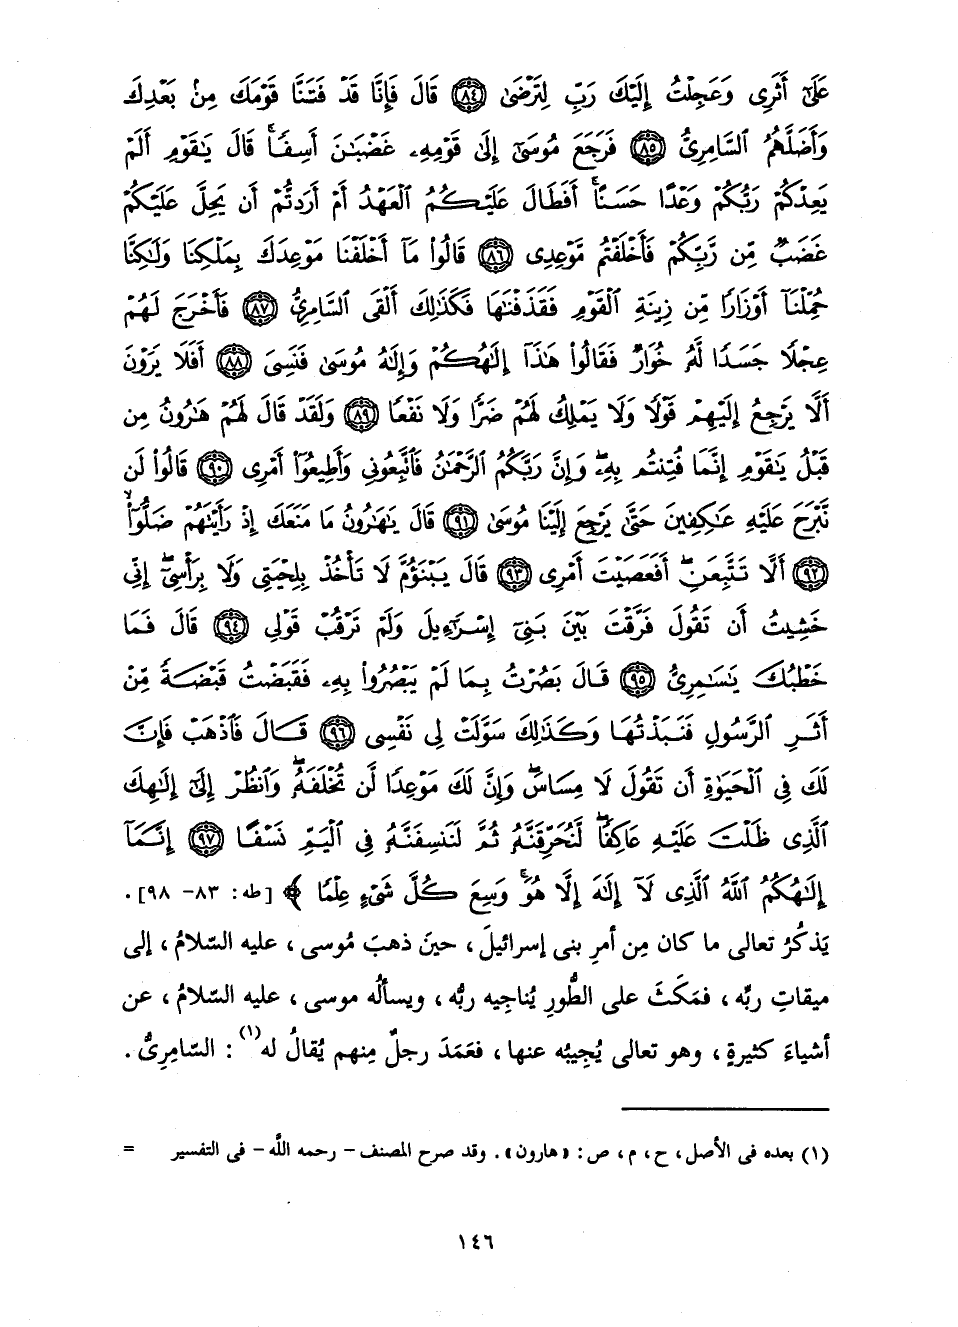 عَلَىٰٓ أَثَرِى وَعَجِلْتُ إِلَيْكَ رَبِّ لِتَرْضَىٰ ﴿٨٤﴾ قَالَ فَإِنَّا قَدْ فَتَنَّا قَوْمَكَ مِنۢ بَعْدِكَ
وَأَضَلَّهُمُ ٱلسَّامِرِىُّ ﴿٨٥﴾ فَرَجَعَ مُوسَىٰٓ إِلَىٰ قَوْمِهِۦ غَضْبَـٰنَ أَسِفًاۚ قَالَ يَـٰقَوْمِ أَلَمْ
يَعِدْكُمْ رَبُّكُمْ وَعْدًا حَسَنًاۚ أَفَطَالَ عَلَيْكُمُ ٱلْعَهْدُ أَمْ أَرَدتُّمْ أَن يَحِلَّ عَلَيْكُمْ
غَضَبٌ مِّن رَّبِّكُمْ فَأَخْلَفْتُم مَّوْعِدِى ﴿٨٦﴾ قَالُوا۟ مَآ أَخْلَفْنَا مَوْعِدَكَ بِمَلْكِنَا وَلَـٰكِنَّا
حُمِّلْنَآ أَوْزَارًا مِّن زِينَةِ ٱلْقَوْمِ فَقَذَفْنَـٰهَا فَكَذَٰلِكَ أَلْقَى ٱلسَّامِرِىُّ ﴿٨٧﴾ فَأَخْرَجَ لَهُمْ
عِجْلًا جَسَدًا لَّهُۥ خُوَارٌ فَقَالُوا۟ هَـٰذَآ إِلَـٰهُكُمْ وَإِلَـٰهُ مُوسَىٰ فَنَسِىَ ﴿٨٨﴾ أَفَلَا يَرَوْنَ
أَلَّا يَرْجِعُ إِلَيْهِمْ قَوْلًا وَلَا يَمْلِكُ لَهُمْ ضَرًّا وَلَا نَفْعًا ﴿٨٩﴾ وَلَقَدْ قَالَ لَهُمْ هَـٰرُونُ مِن
قَبْلُ يَـٰقَوْمِ إِنَّمَا فُتِنتُم بِهِۦۖ وَإِنَّ رَبَّكُمُ ٱلرَّحْمَـٰنُ فَٱتَّبِعُونِى وَأَطِيعُوٓا۟ أَمْرِى ﴿٩٠﴾ قَالُوا۟ لَن
نَّبْرَحَ عَلَيْهِ عَـٰكِفِينَ حَتَّىٰ يَرْجِعَ إِلَيْنَا مُوسَىٰ ﴿٩١﴾ قَالَ يَـٰهَـٰرُونُ مَا مَنَعَكَ إِذْ رَأَيْتَهُمْ ضَلُّوٓا۟ۙ
﴿٩٢﴾ أَلَّا تَتَّبِعَنِۖ أَفَعَصَيْتَ أَمْرِى ﴿٩٣﴾ قَالَ يَبْنَؤُمَّ لَا تَأْخُذْ بِلِحْيَتِى وَلَا بِرَأْسِىٓۖ إِنِّى
خَشِيتُ أَن تَقُولَ فَرَّقْتَ بَيْنَ بَنِىٓ إِسْرَٰٓءِيلَ وَلَمْ تَرْقُبْ قَوْلِى ﴿٩٤﴾ قَالَ فَمَا
خَطْبُكَ يَـٰسَـٰمِرِىُّ ﴿٩٥﴾ قَالَ بَصُرْتُ بِمَا لَمْ يَبْصُرُوا۟ بِهِۦ فَقَبَضْتُ قَبْضَةً مِّنْ
أَثَرِ ٱلرَّسُولِ فَنَبَذْتُهَا وَكَذَٰلِكَ سَوَّلَتْ لِى نَفْسِى ﴿٩٦﴾ قَالَ فَٱذْهَبْ فَإِنَّ
لَكَ فِى ٱلْحَيَوٰةِ أَن تَقُولَ لَا مِسَاسَۖ وَإِنَّ لَكَ مَوْعِدًا لَّن تُخْلَفَهُۥۖ وَٱنظُرْ إِلَىٰٓ إِلَـٰهِكَ
ٱلَّذِى ظَلْتَ عَلَيْهِ عَاكِفًاۖ لَّنُحَرِّقَنَّهُۥ ثُمَّ لَنَنسِفَنَّهُۥ فِى ٱلْيَمِّ نَسْفًا ﴿٩٧﴾ إِنَّمَآ
إِلَـٰهُكُمُ ٱللَّهُ ٱلَّذِى لَآ إِلَـٰهَ إِلَّا هُوَۚ وَسِعَ كُلَّ شَىْءٍ عِلْمًا ﴾ [طه: ٨٣- ٩٨].
يَذكُرُ تعالى ما كان مِن أمرِ بنى إسرائيلَ، حينَ ذهبَ مُوسى، عليه السّلامُ، إلى
ميقاتِ ربِّه، فمَكَثَ على الطُّورِ يُناجِيه ربُّه، ويسألُه موسى، عليه السّلامُ، عن
أشياءَ كثيرةٍ، وهو تعالى يُجِيبُه عنها، فعَمَدَ رجلٌ مِنهم يُقالُ له(١): السّامِرِىُّ.
(١) بعده فى الأصل، ح، م، ص: «هارون». وقد صرح المصنف - رحمه اللَّه - فى التفسير =
١٤٦